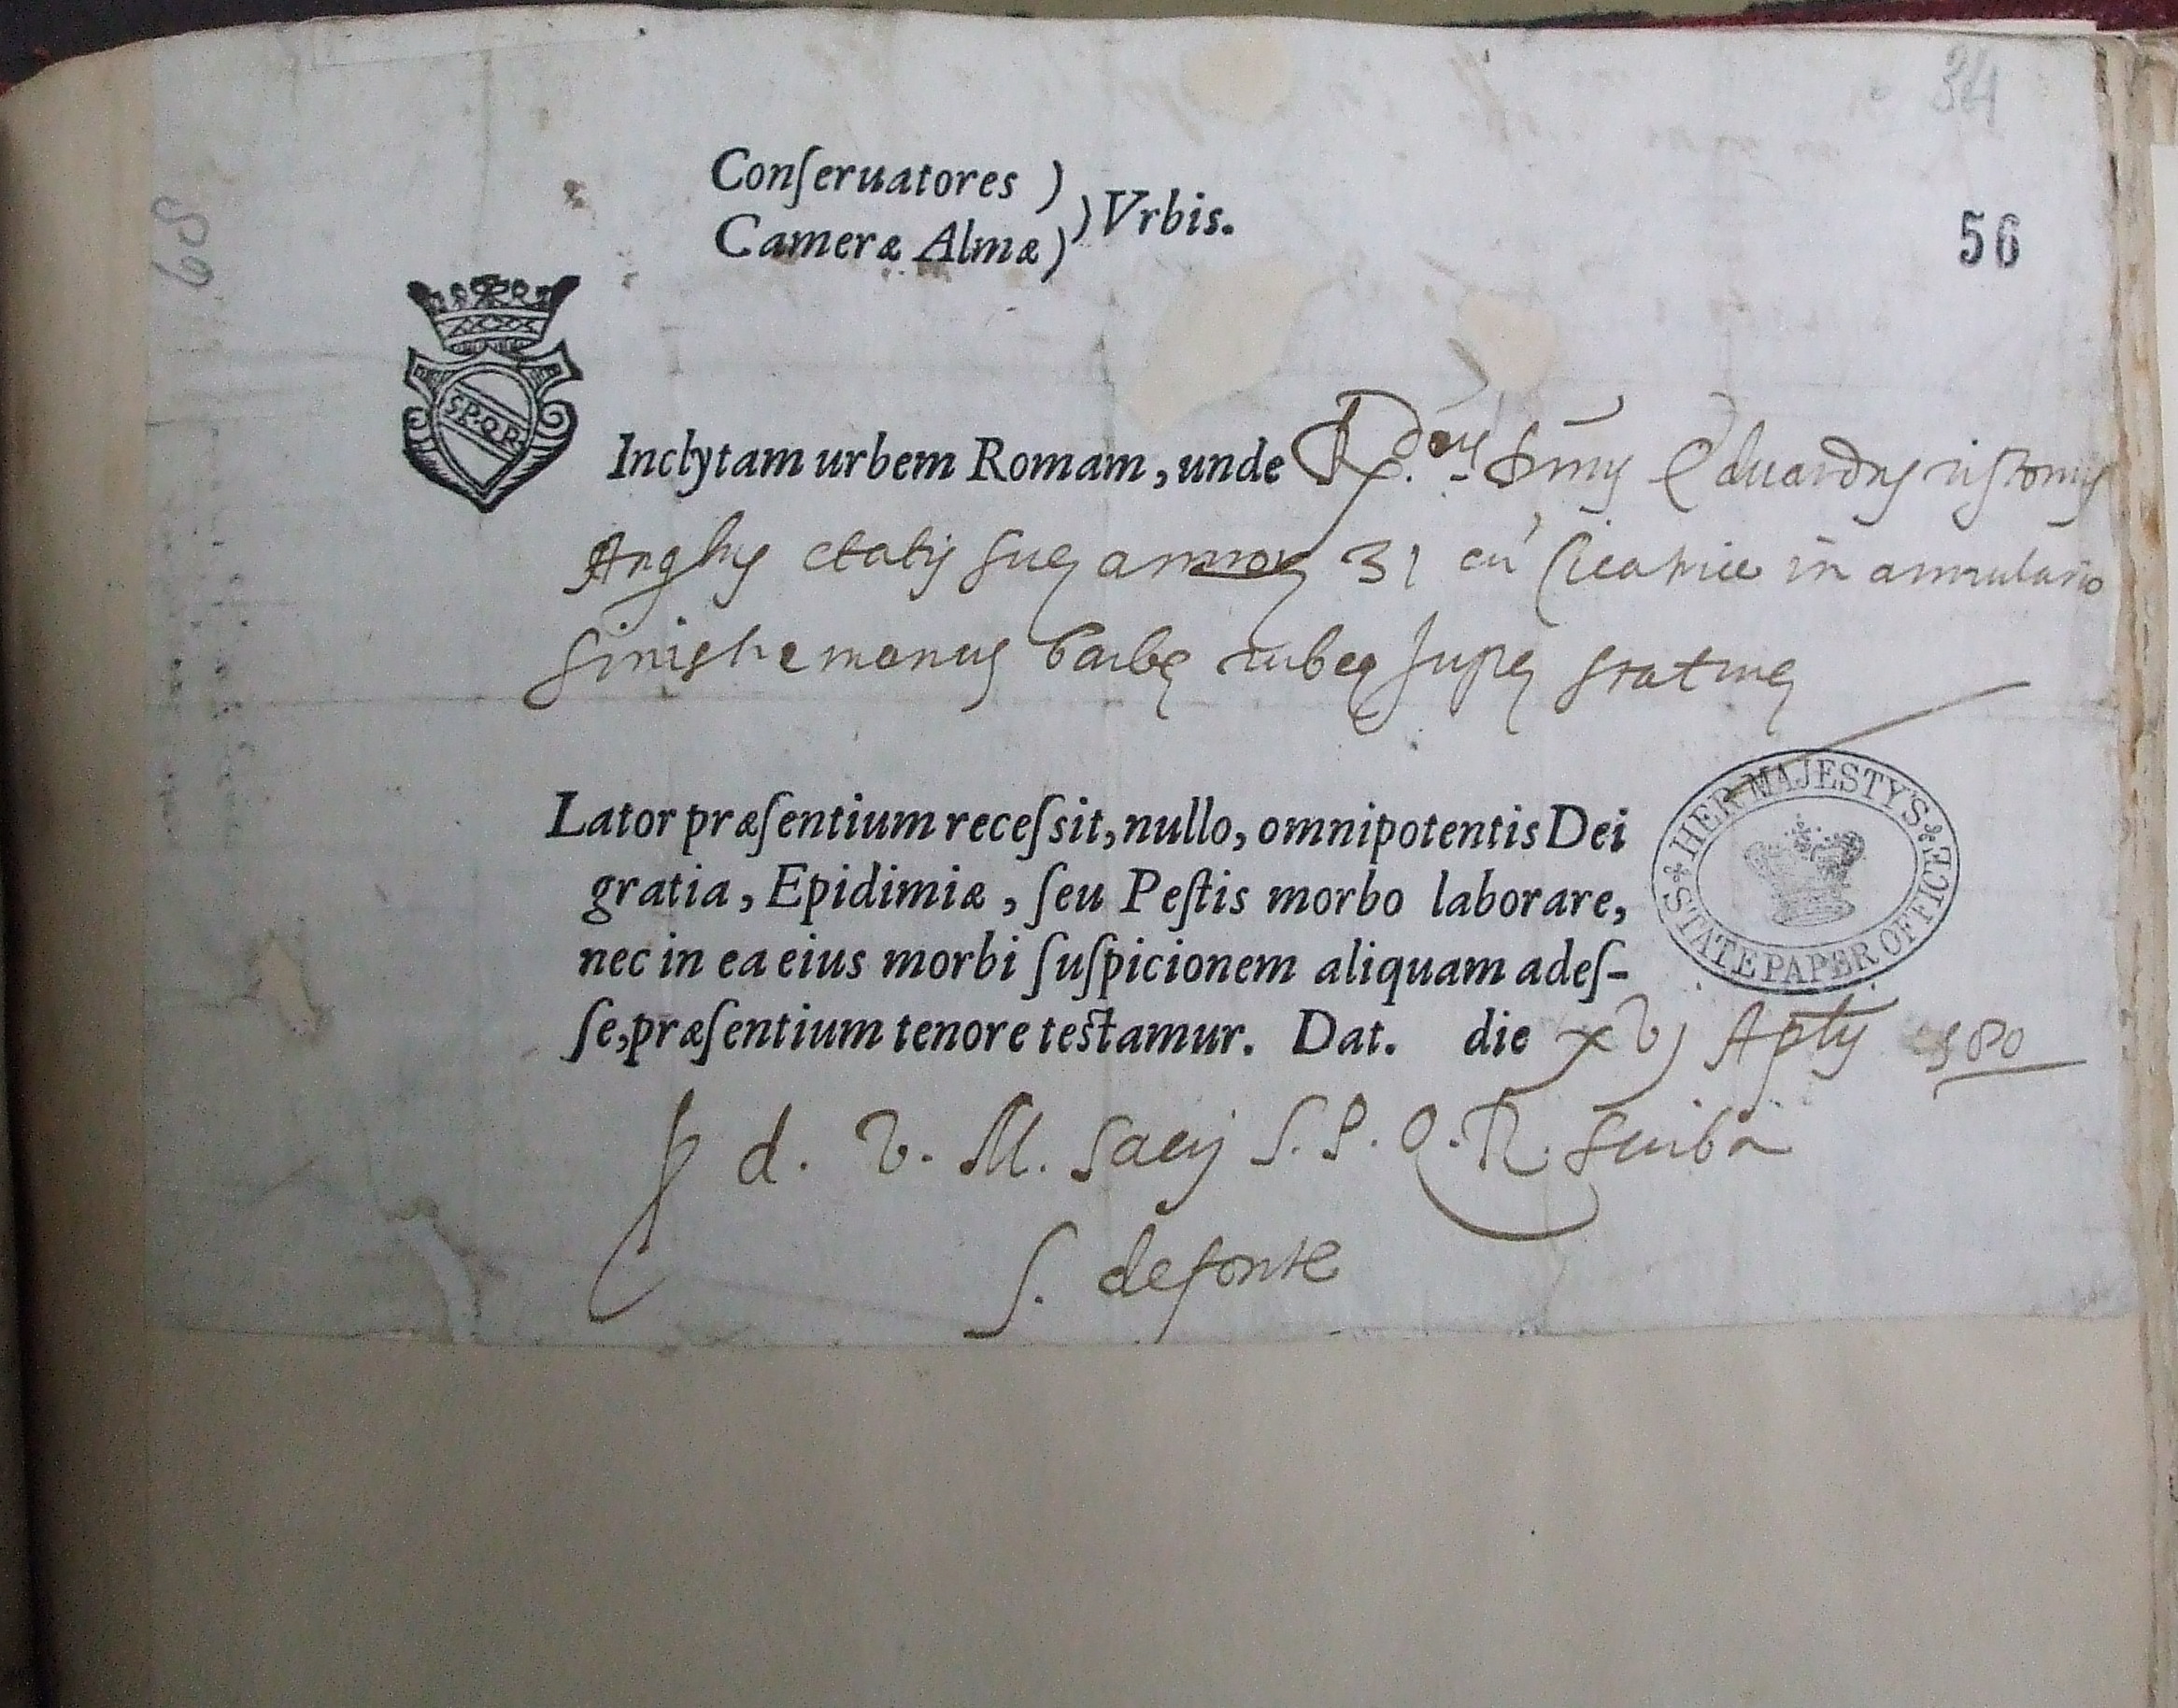 34
Conſeruatores )
) Vrbis.
Cameræ Almæ )
56
68
S.P.Q.R.
Inclytam urbem Romam, unde R.dus Dnus Eduardus ristonus
Anglus etatis sueę annorum 31 cu' Cicatrice in annulario
sinistre manus barbę rubeę supę statuę
Lator præſentium receſsit, nullo, omnipotentis Dei
gratia, Epidimiæ, ſeu Peſtis morbo laborare,
nec in ea eius morbi ſuſpicionem aliquam adeſ-
ſe, præſentium tenore teſtamur. Dat. die xvj Aplis 1580
HER MAJESTY'S STATE PAPER OFFICE
d. V. M. Sacij S. P. Q. R. scriba
S. defonte